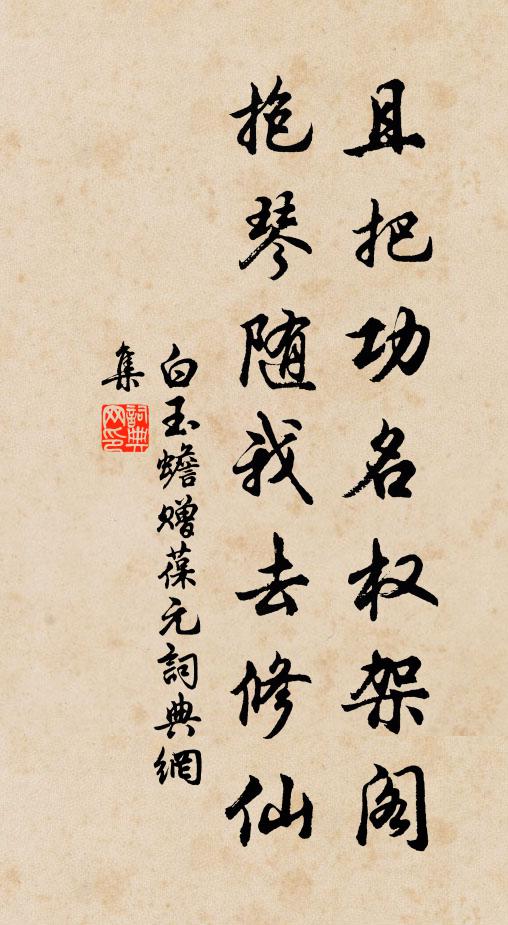 且把功名权架阁
抱琴随我去修仙
白玉蟾赠葆元詞典網
集
詞典网印